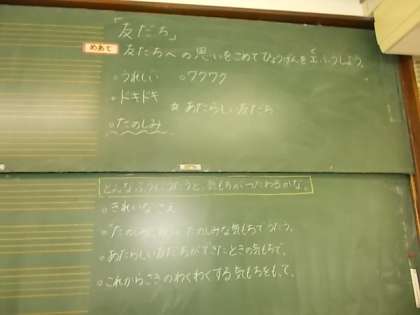 「友だち」
めあて 友だちへの思いをこめてひょうげんをくふうしよう。
○うれしい ○ワクワク
○ドキドキ
☆あたらしい友だち
○たのしみ
どんなふうにうたうと、気もちがつたわるかな。
○きれいなこえ
○たのしみな気もちでうたう。
○あたらしい友だちができたときの気もちで、
○これからさきのわくわくする気もちをもって、